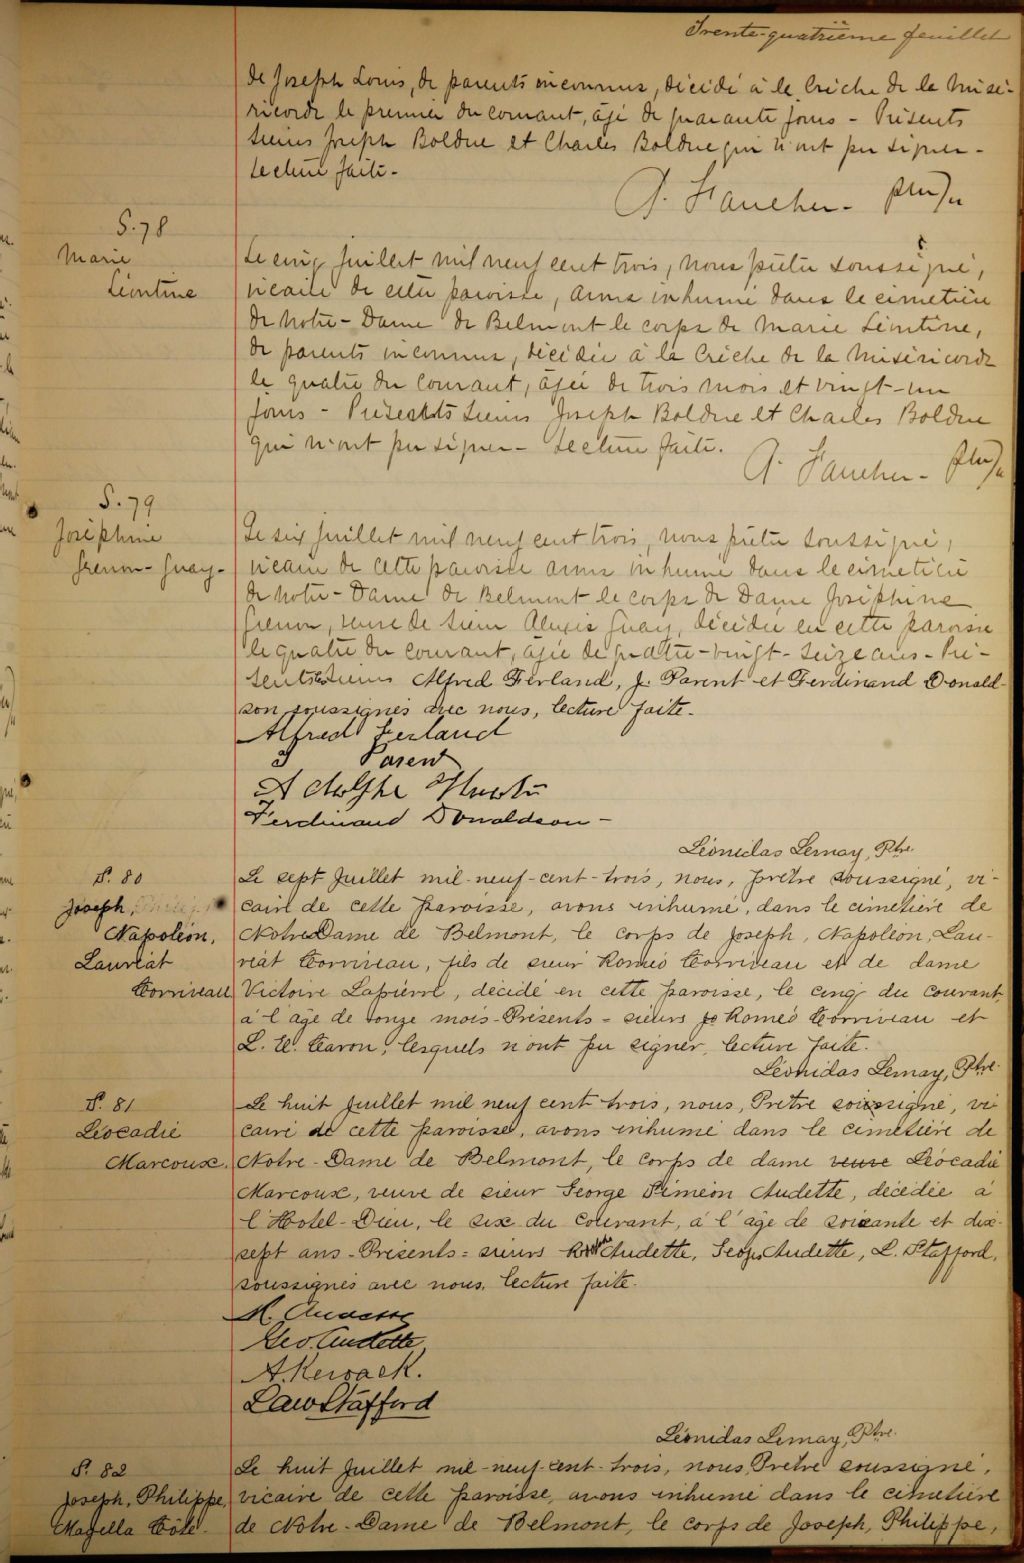 Trente-quatrième feuillet
de Joseph Louis, de parents inconnus, décédé à la Crèche de la Misé-
ricorde le premier du courant, âgé de quarante jours - Présents
Sieurs Joseph Bolduc et Charles Bolduc qui n'ont pu signer -
Lecture faite -
A. Faucher - ptre
S. 78
Marie
Léontine
Le cinq juillet mil neuf cent trois, nous prêtre soussigné,
vicaire de cette paroisse, avons inhumé dans le cimetière
de Notre-Dame de Belmont le corps de Marie Léontine,
de parents inconnus, décédée à la Crèche de la Miséricorde
le quatre du courant, âgée de trois mois et vingt-un
jours - Présents Sieurs Joseph Bolduc et Charles Bolduc
qui n'ont pu signer - Lecture faite.
A. Faucher - ptre
S. 79
Joséphine
Grenon-Guay-
Le six juillet mil neuf cent trois, nous prêtre soussigné,
vicaire de cette paroisse avons inhumé dans le cimetière
de Notre-Dame de Belmont le corps de Dame Joséphine
Grenon, veuve de Sieur Alexis Guay, décédée en cette paroisse
le quatre du courant, âgée de quatre-vingt-seize ans - Pré-
sents Sieurs Alfred Ferland, J. Parent et Ferdinand Donald-
son soussignés avec nous, lecture faite.
Alfred Ferland
J Parent
Adolphe
Ferdinand Donaldson -
Léonidas Lemay, Ptre.
S. 80
Joseph,
Napoléon,
Lauréat
Corriveau
Le sept Juillet mil-neuf-cent-trois, nous, prêtre soussigné, vi-
caire de cette paroisse, avons inhumé, dans le cimetière de
Notre Dame de Belmont, le corps de Joseph, Napoléon, Lau-
réat Corriveau, fils de sieur Roméo Corriveau et de dame
Victoire Lapierre, décédé en cette paroisse, le cinq du courant,
à l'âge de onze mois - Présents = sieurs Roméo Corriveau et
L. E. Caron, lesquels n'ont pu signer, lecture faite.
Léonidas Lemay, Ptre.
S. 81
Léocadie
Marcoux.
Le huit Juillet mil neuf cent trois, nous, Prêtre soussigné, vi
caire de cette paroisse, avons inhumé dans le cimetière de
Notre-Dame de Belmont, le corps de dame veuve Léocadie
Marcoux, veuve de sieur George Siméon Audette, décédée à
l'Hotel-Dieu, le six du courant, à l'âge de soixante et dix-
sept ans - Présents = sieurs Audette, Geo. Audette, L. Stafford,
soussignés avec nous, lecture faite.
R. Audette
Geo. Audette
A. Kerouack.
Law Stafford
Léonidas Lemay, Ptre.
S. 82
Joseph, Philippe,
Magella Côté.
Le huit Juillet mil-neuf-cent-trois, nous, Prêtre soussigné,
vicaire de cette paroisse, avons inhumé dans le cimetière
de Notre-Dame de Belmont, le corps de Joseph, Philippe,